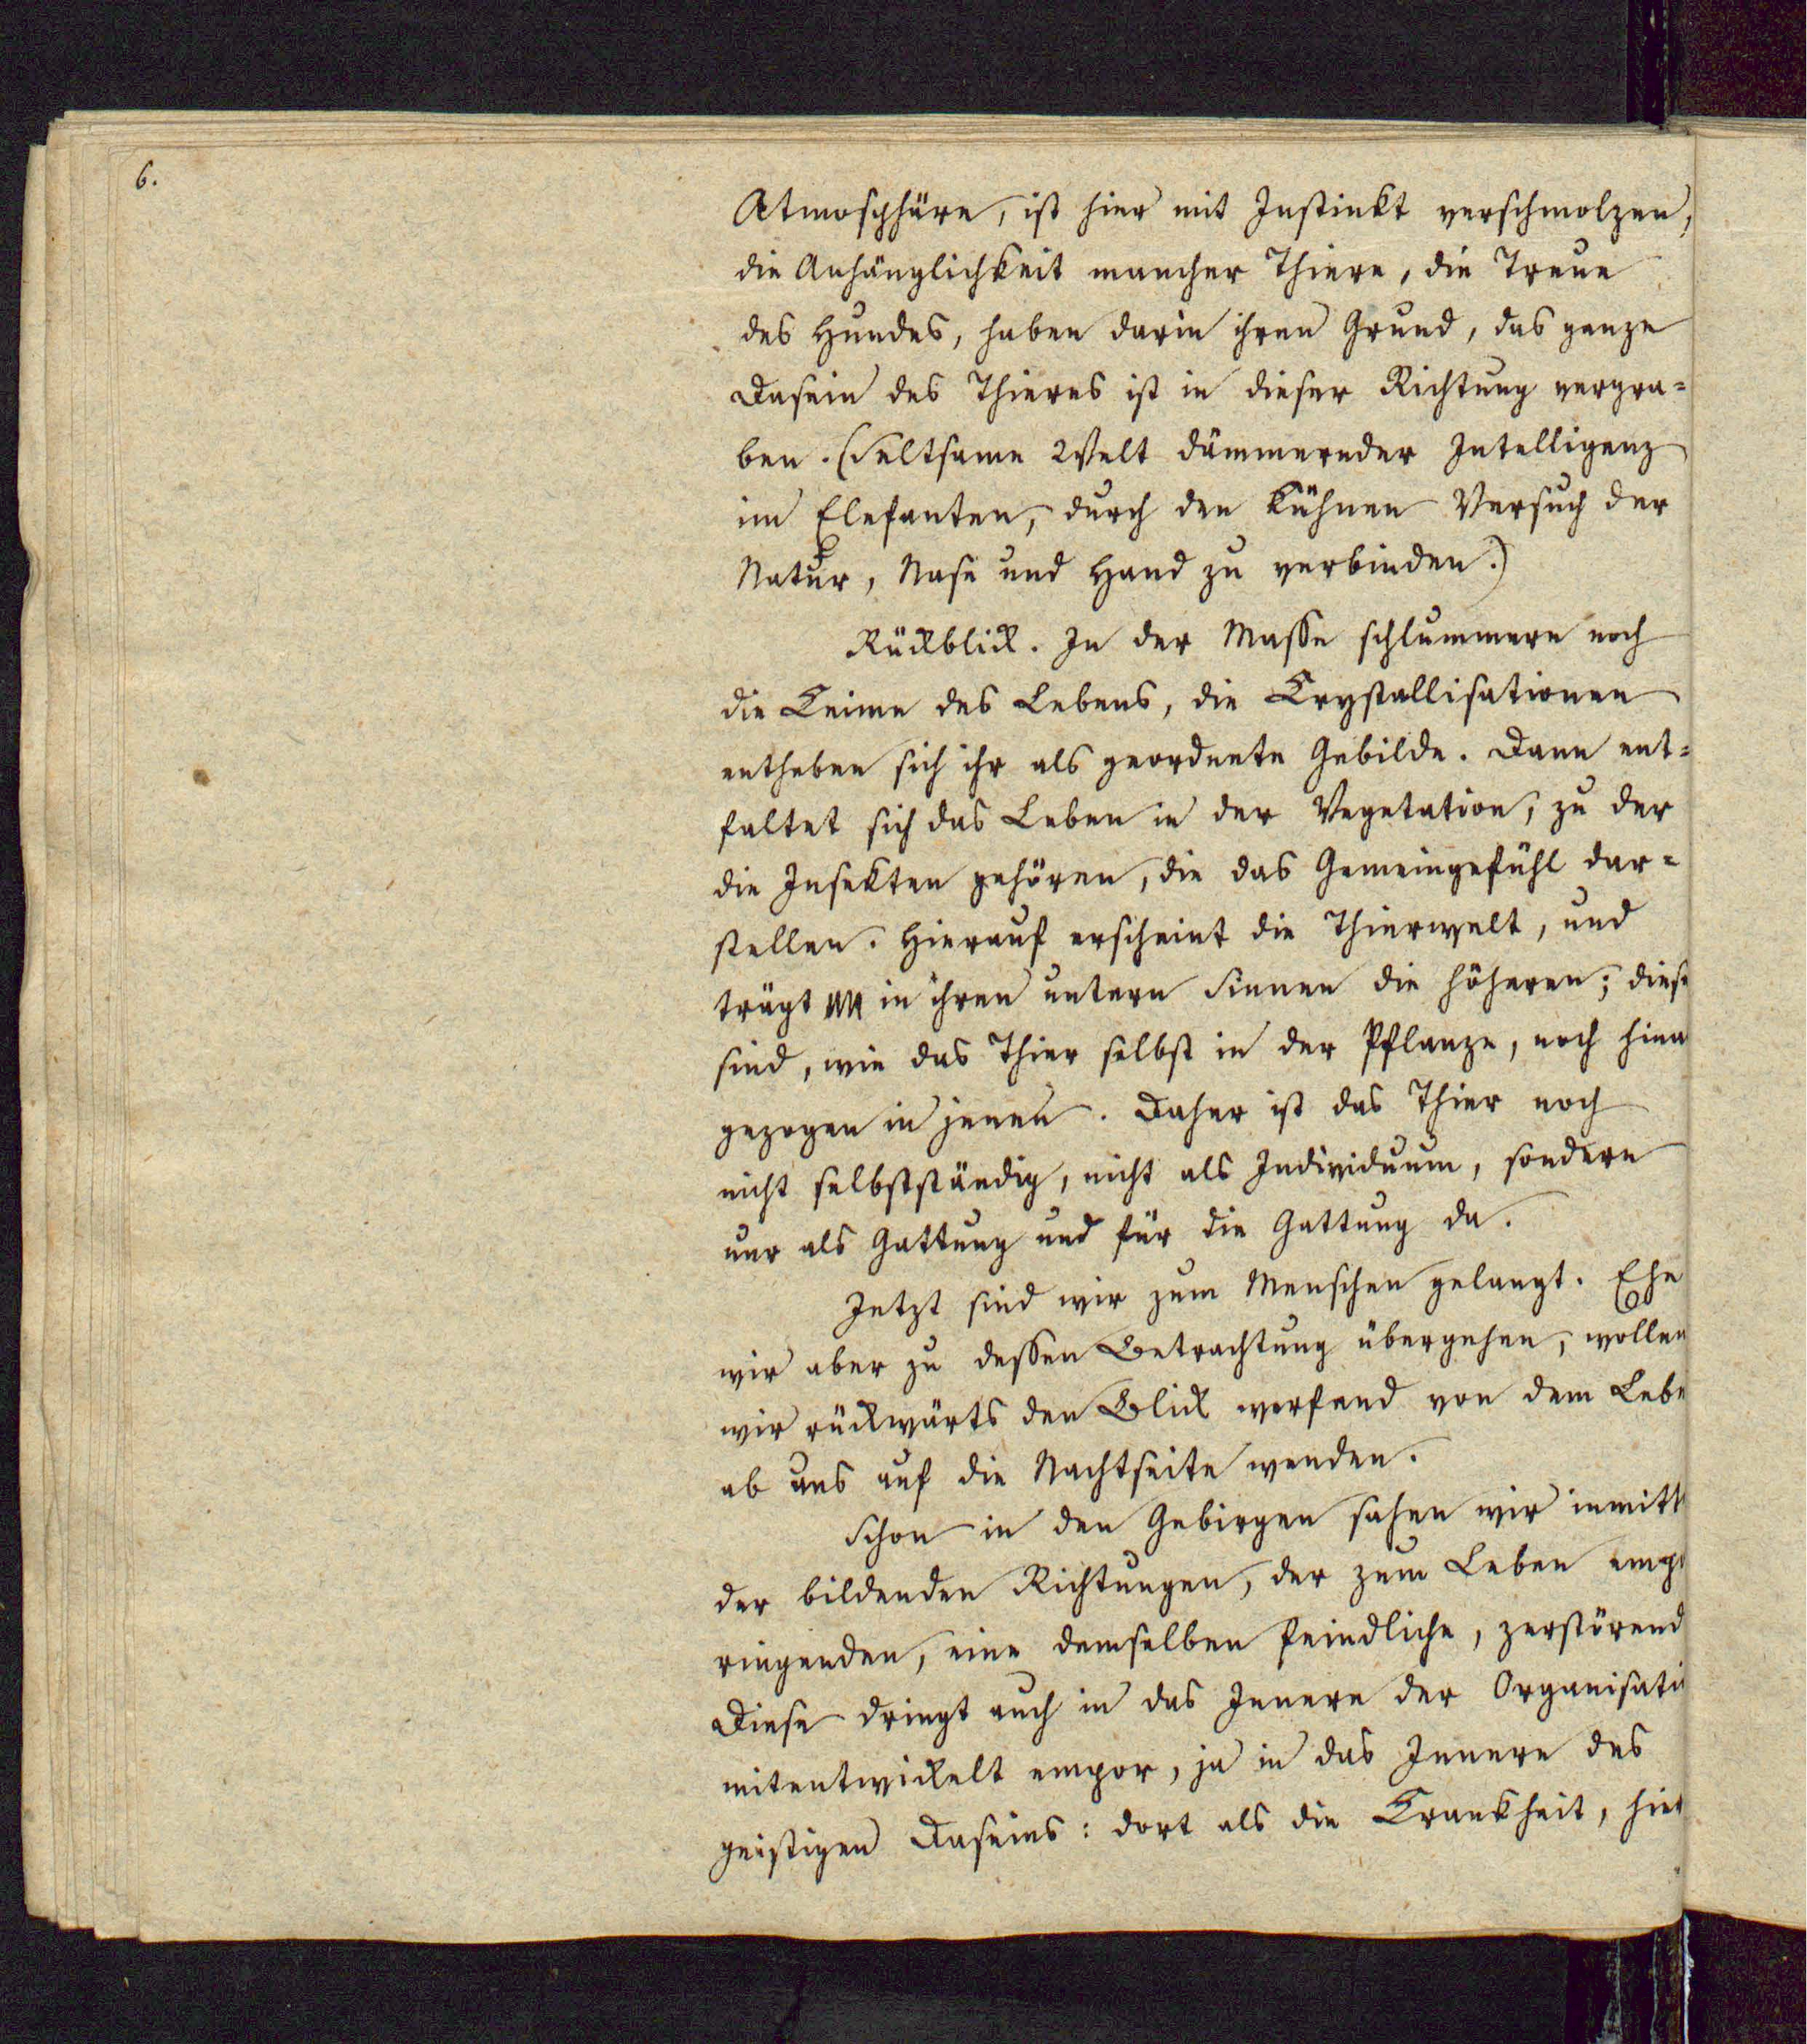 6.
Atmosphäre, ist hier mit Instinkt verschmolzen,
die Anhänglichkeit mancher Thiere, die Treue
des Hundes, haben darin ihren Grund, das ganze
Dasein des Thieres ist in dieser Richtung vergra=
ben. (Seltsame Welt dämmernder Intelligenz
im Elefanten, durch den kühnen Versuch der
Natur, Nase und Hand zu verbinden.)
Rückblick. In der Masse schlummern noch
die Keime des Lebens, die Krystallisationen
entheben sich ihr als geordnete Gebilde. Dann ent=
faltet sich das Leben in der Vegetation, zu der
die Insekten gehören, die das Gemeingefühl dar=
stellen. Hierauf erscheint die Thierwelt, und
trägt in ihren untern Sinnen die höheren; diese
sind, wie das Thier selbst in der Pflanze, noch hine
gezogen in jenen. Daher ist das Thier noch
nicht selbstständig, nicht als Individuum, sondern
nur als Gattung und für die Gattung da.
Jetzt sind wir zum Menschen gelangt. Ehe
wir aber zu dessen Betrachtung übergehen, wollen
wir rückwärts den Blick werfend von dem Lebe
ab uns auf die Nachtseite wenden.
Schon in den Gebirgen sahen wir inmitt
der bildenden Richtungen, der zum Leben empo
ringenden, eine demselben feindliche, zerstörend
Diese dringt auch in das Innere der Organisati
mitentwickelt empor, ja in das Innere des
geistigen Daseins: dort als die Krankheit, hier